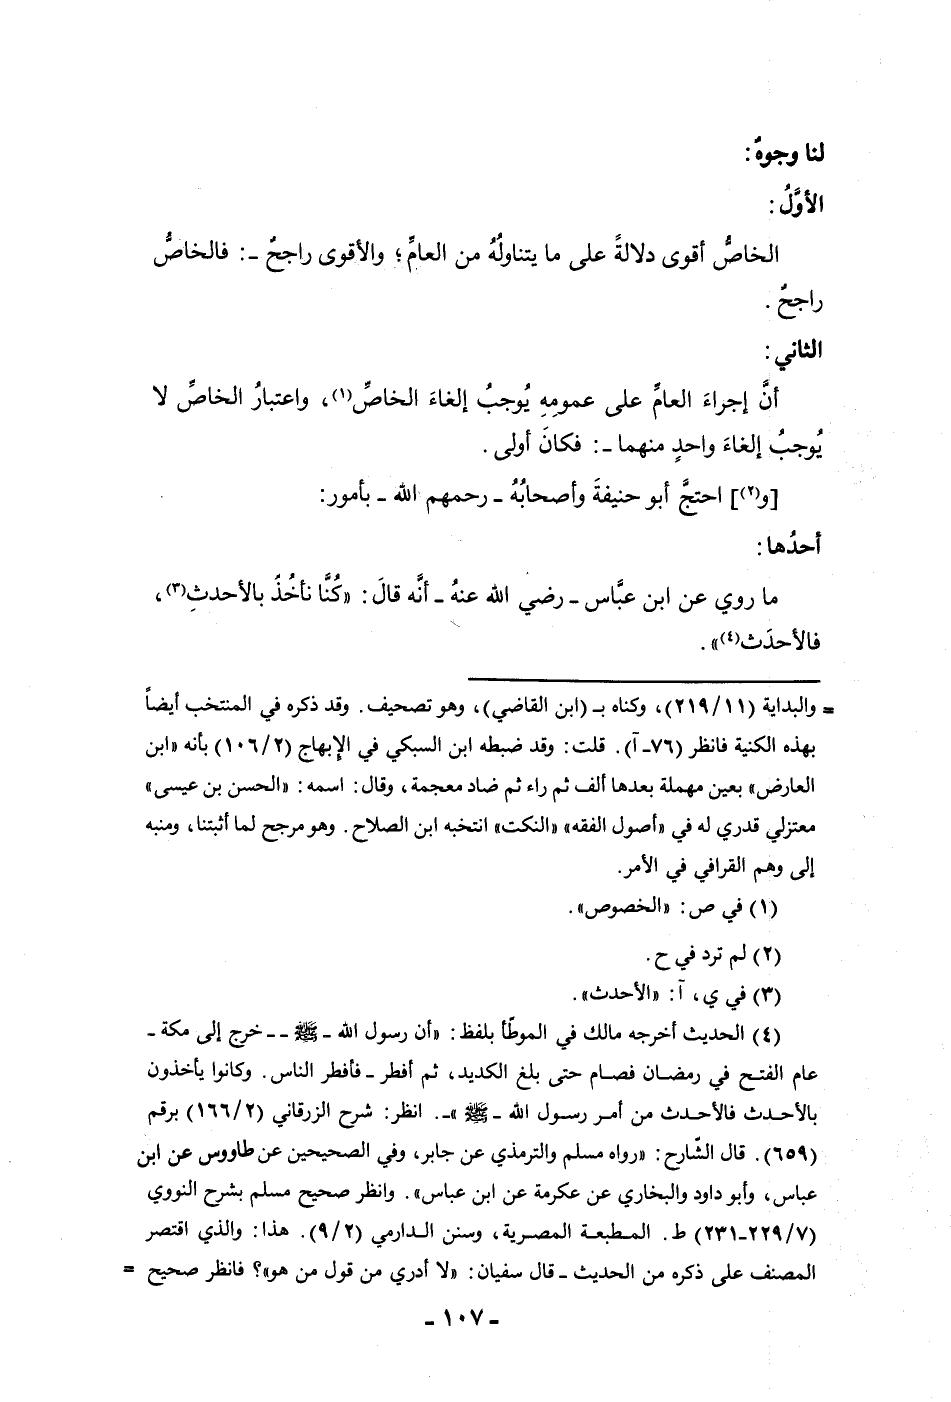 لنا وجوهٌ:
الأوَّلُ:
الخاصُّ أقوى دلالةً على ما يتناولُهُ من العامِّ؛ والأقوى راجحٌ ـ: فالخاصُّ
راجحٌ .
الثاني:
أنَّ إجراءَ العامِّ على عمومِهِ يُوجبُ إلغاءَ الخاصِّ(١)، واعتبارُ الخاصِّ لا
يُوجبُ إلغاءَ واحدٍ منهما ـ: فكانَ أولى .
[و(٢)] احتجَّ أبو حنيفةَ وأصحابُهُ ـ رحمهم الله ـ بأمور:
أحدُها:
ما روي عن ابن عبَّاس ـ رضي الله عنهُ ـ أنَّه قالَ: «كُنَّا نأخُذُ بالأحدثِ(٣)،
فالأحدَث(٤)» .
= والبداية (٢١٩/١١)، وكناه بـ (ابن القاضي)، وهو تصحيف. وقد ذكره في المنتخب أيضاً
بهذه الكنية فانظر (٧٦ـ آ). قلت: وقد ضبطه ابن السبكي في الإبهاج (١٠٦/٢) بأنه «ابن
العارض» بعين مهملة بعدها ألف ثم راء ثم ضاد معجمة، وقال: اسمه: «الحسن بن عيسى»
معتزلي قدري له في «أصول الفقه» «النكت» انتخبه ابن الصلاح. وهو مرجح لما أثبتنا، ومنبه
إلى وهم القرافي في الأمر.
(١) في ص: «الخصوص» .
(٢) لم ترد في ح.
(٣) في ي، آ: «الأحدث» .
(٤) الحديث أخرجه مالك في الموطّأ بلفظ: «أن رسول الله ـ ﷺ ـ ـ خرج إلى مكة ـ
عام الفتح في رمضان فصام حتى بلغ الكديد، ثم أفطر ـ فأفطر الناس. وكانوا يأخذون
بالأحدث فالأحدث من أمر رسول الله ـ ﷺ »ـ. انظر: شرح الزرقاني (١٦٦/٢) برقم
(٦٥٩). قال الشّارح: «رواه مسلم والترمذي عن جابر، وفي الصحيحين عن طاووس عن ابن
عباس، وأبو داود والبخاري عن عكرمة عن ابن عباس». وانظر صحيح مسلم بشرح النووي
(٢٢٩/٧ـ٢٣١) ط. المطبعة المصرية، وسنن الدارمي (٩/٢). هذا: والذي اقتصر
المصنف على ذكره من الحديث ـ قال سفيان: «لا أدري من قول من هو»؟ فانظر صحيح =
ـ ١٠٧ ـ